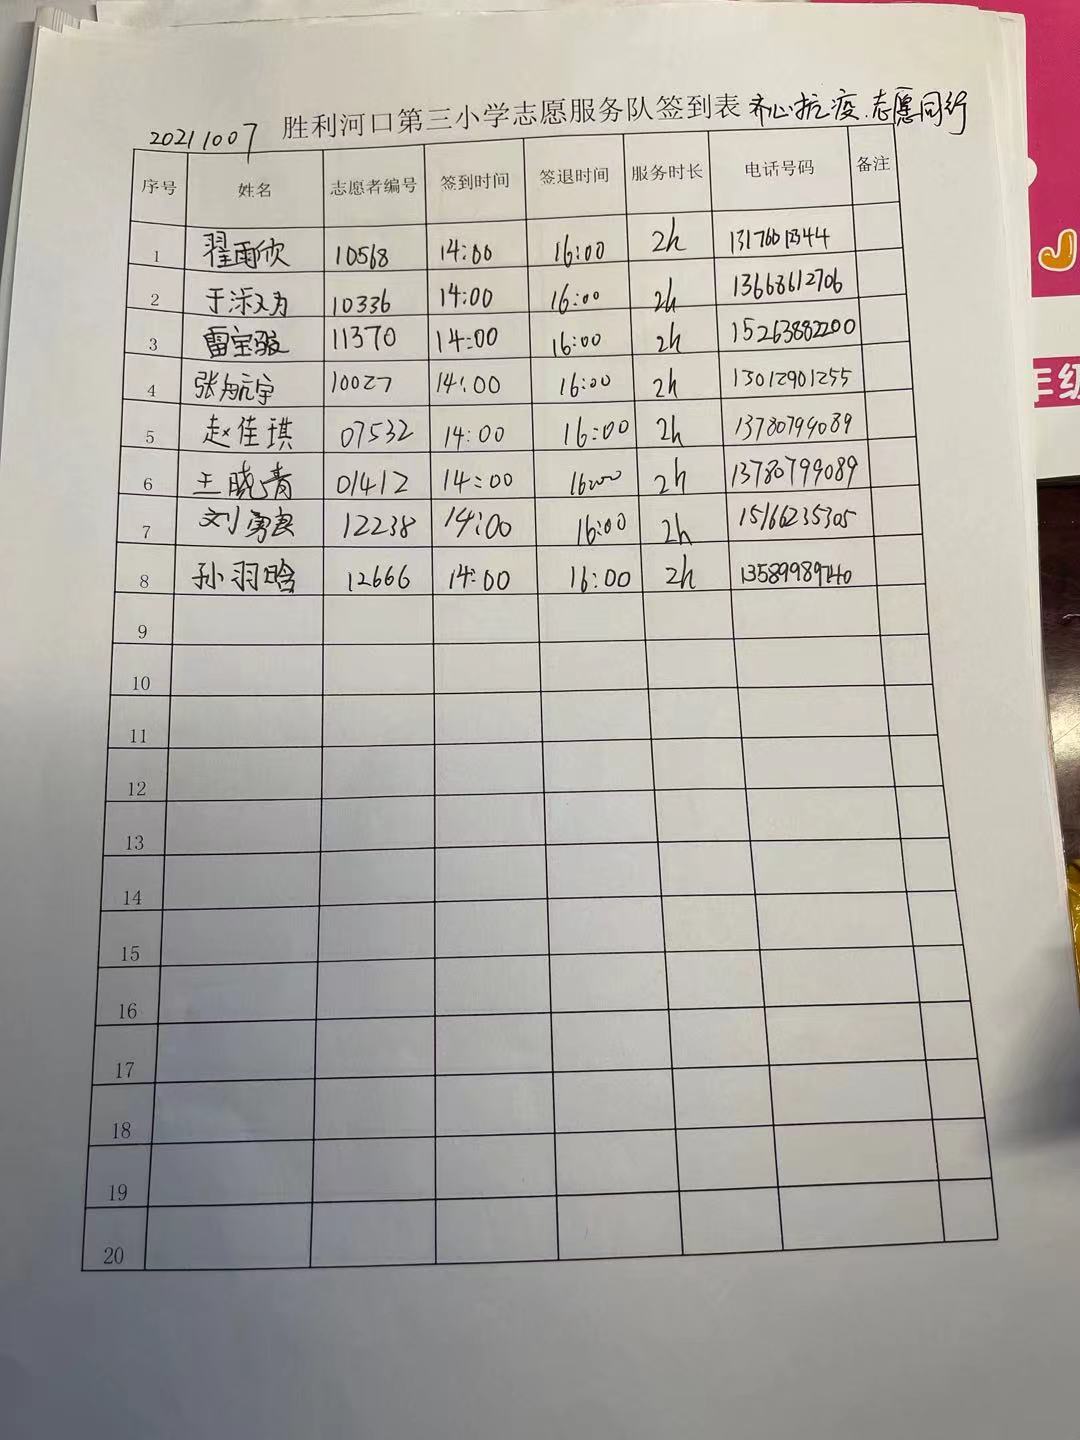 20211007 胜利河口第三小学志愿服务队签到表 齐心抗疫.志愿同行
序号 姓名 志愿者编号 签到时间 签退时间 服务时长 电话号码 备注
1 翟雨欣 10568 14:00 16:00 2h
2 于 10336 14:00 16:00 2h 13668612706
3 雷宝骏 11370 14:00 16:00 2h 15263882200
4 张航宇 10027 14:00 16:00 2h 13012901255
5 赵佳琪 07532 14:00 16:00 2h 13780799089
6 王晓青 01412 14:00 16:00 2h 13780799089
7 刘勇良 12238 14:00 16:00 2h 15166235305
8 孙羽晗 12666 14:00 16:00 2h
9
10
11
12
13
14
15
16
17
18
19
20
年级